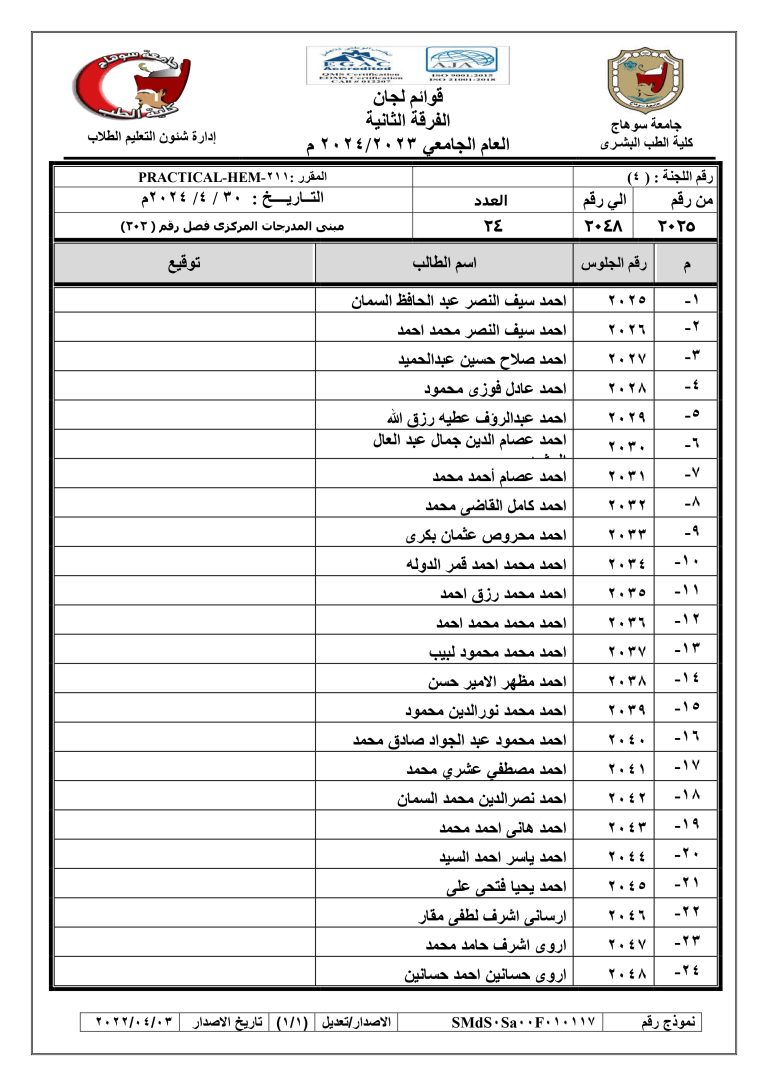 جامعة سوهاج
كلية الطب
إدارة شئون التعليم الطلاب
EGAC
Accredited
QMS Certification
EOMS Certification
CAB # 012207
AJA
ISO 9001:2015
ISO 21001:2018
قوائم لجان
الفرقة الثانية
العام الجامعي ٢٠٢٤/٢٠٢٣ م
جامعة سوهاج
كلية الطب البشرى
رقم اللجنة : ( ٤) المقرر :PRACTICAL-HEM-٢١١
من رقم الي رقم العدد التـاريـــخ : ٣٠ / ٤/ ٢٠٢٤م
٢٠٢٥ ٢٠٤٨ ٢٤ مبنى المدرجات المركزى فصل رقم ( ٢٠٢)
م رقم الجلوس اسم الطالب توقيع
١- ٢٠٢٥ احمد سيف النصر عبد الحافظ السمان
٢- ٢٠٢٦ احمد سيف النصر محمد احمد
٣- ٢٠٢٧ احمد صلاح حسين عبدالحميد
٤- ٢٠٢٨ احمد عادل فوزى محمود
٥- ٢٠٢٩ احمد عبدالرؤف عطيه رزق الله
٦- ٢٠٣٠ احمد عصام الدين جمال عبد العال
٧- ٢٠٣١ احمد عصام أحمد محمد
٨- ٢٠٣٢ احمد كامل القاضي محمد
٩- ٢٠٣٣ احمد محروص عثمان بكرى
١٠- ٢٠٣٤ احمد محمد احمد قمر الدوله
١١- ٢٠٣٥ احمد محمد رزق احمد
١٢- ٢٠٣٦ احمد محمد محمد احمد
١٣- ٢٠٣٧ احمد محمد محمود لبيب
١٤- ٢٠٣٨ احمد مظهر الامير حسن
١٥- ٢٠٣٩ احمد محمد نورالدين محمود
١٦- ٢٠٤٠ احمد محمود عبد الجواد صادق محمد
١٧- ٢٠٤١ احمد مصطفي عشري محمد
١٨- ٢٠٤٢ احمد نصرالدين محمد السمان
١٩- ٢٠٤٣ احمد هانى احمد محمد
٢٠- ٢٠٤٤ احمد ياسر احمد السيد
٢١- ٢٠٤٥ احمد يحيا فتحى على
٢٢- ٢٠٤٦ ارسانى اشرف لطفى مقار
٢٣- ٢٠٤٧ اروى اشرف حامد محمد
٢٤- ٢٠٤٨ اروى حسانين احمد حسانين
نموذج رقم SMdS٠Sa٠٠F٠١٠١١٧ الاصدار/تعديل (١/١) تاريخ الاصدار ٢٠٢٢/٠٤/٠٣